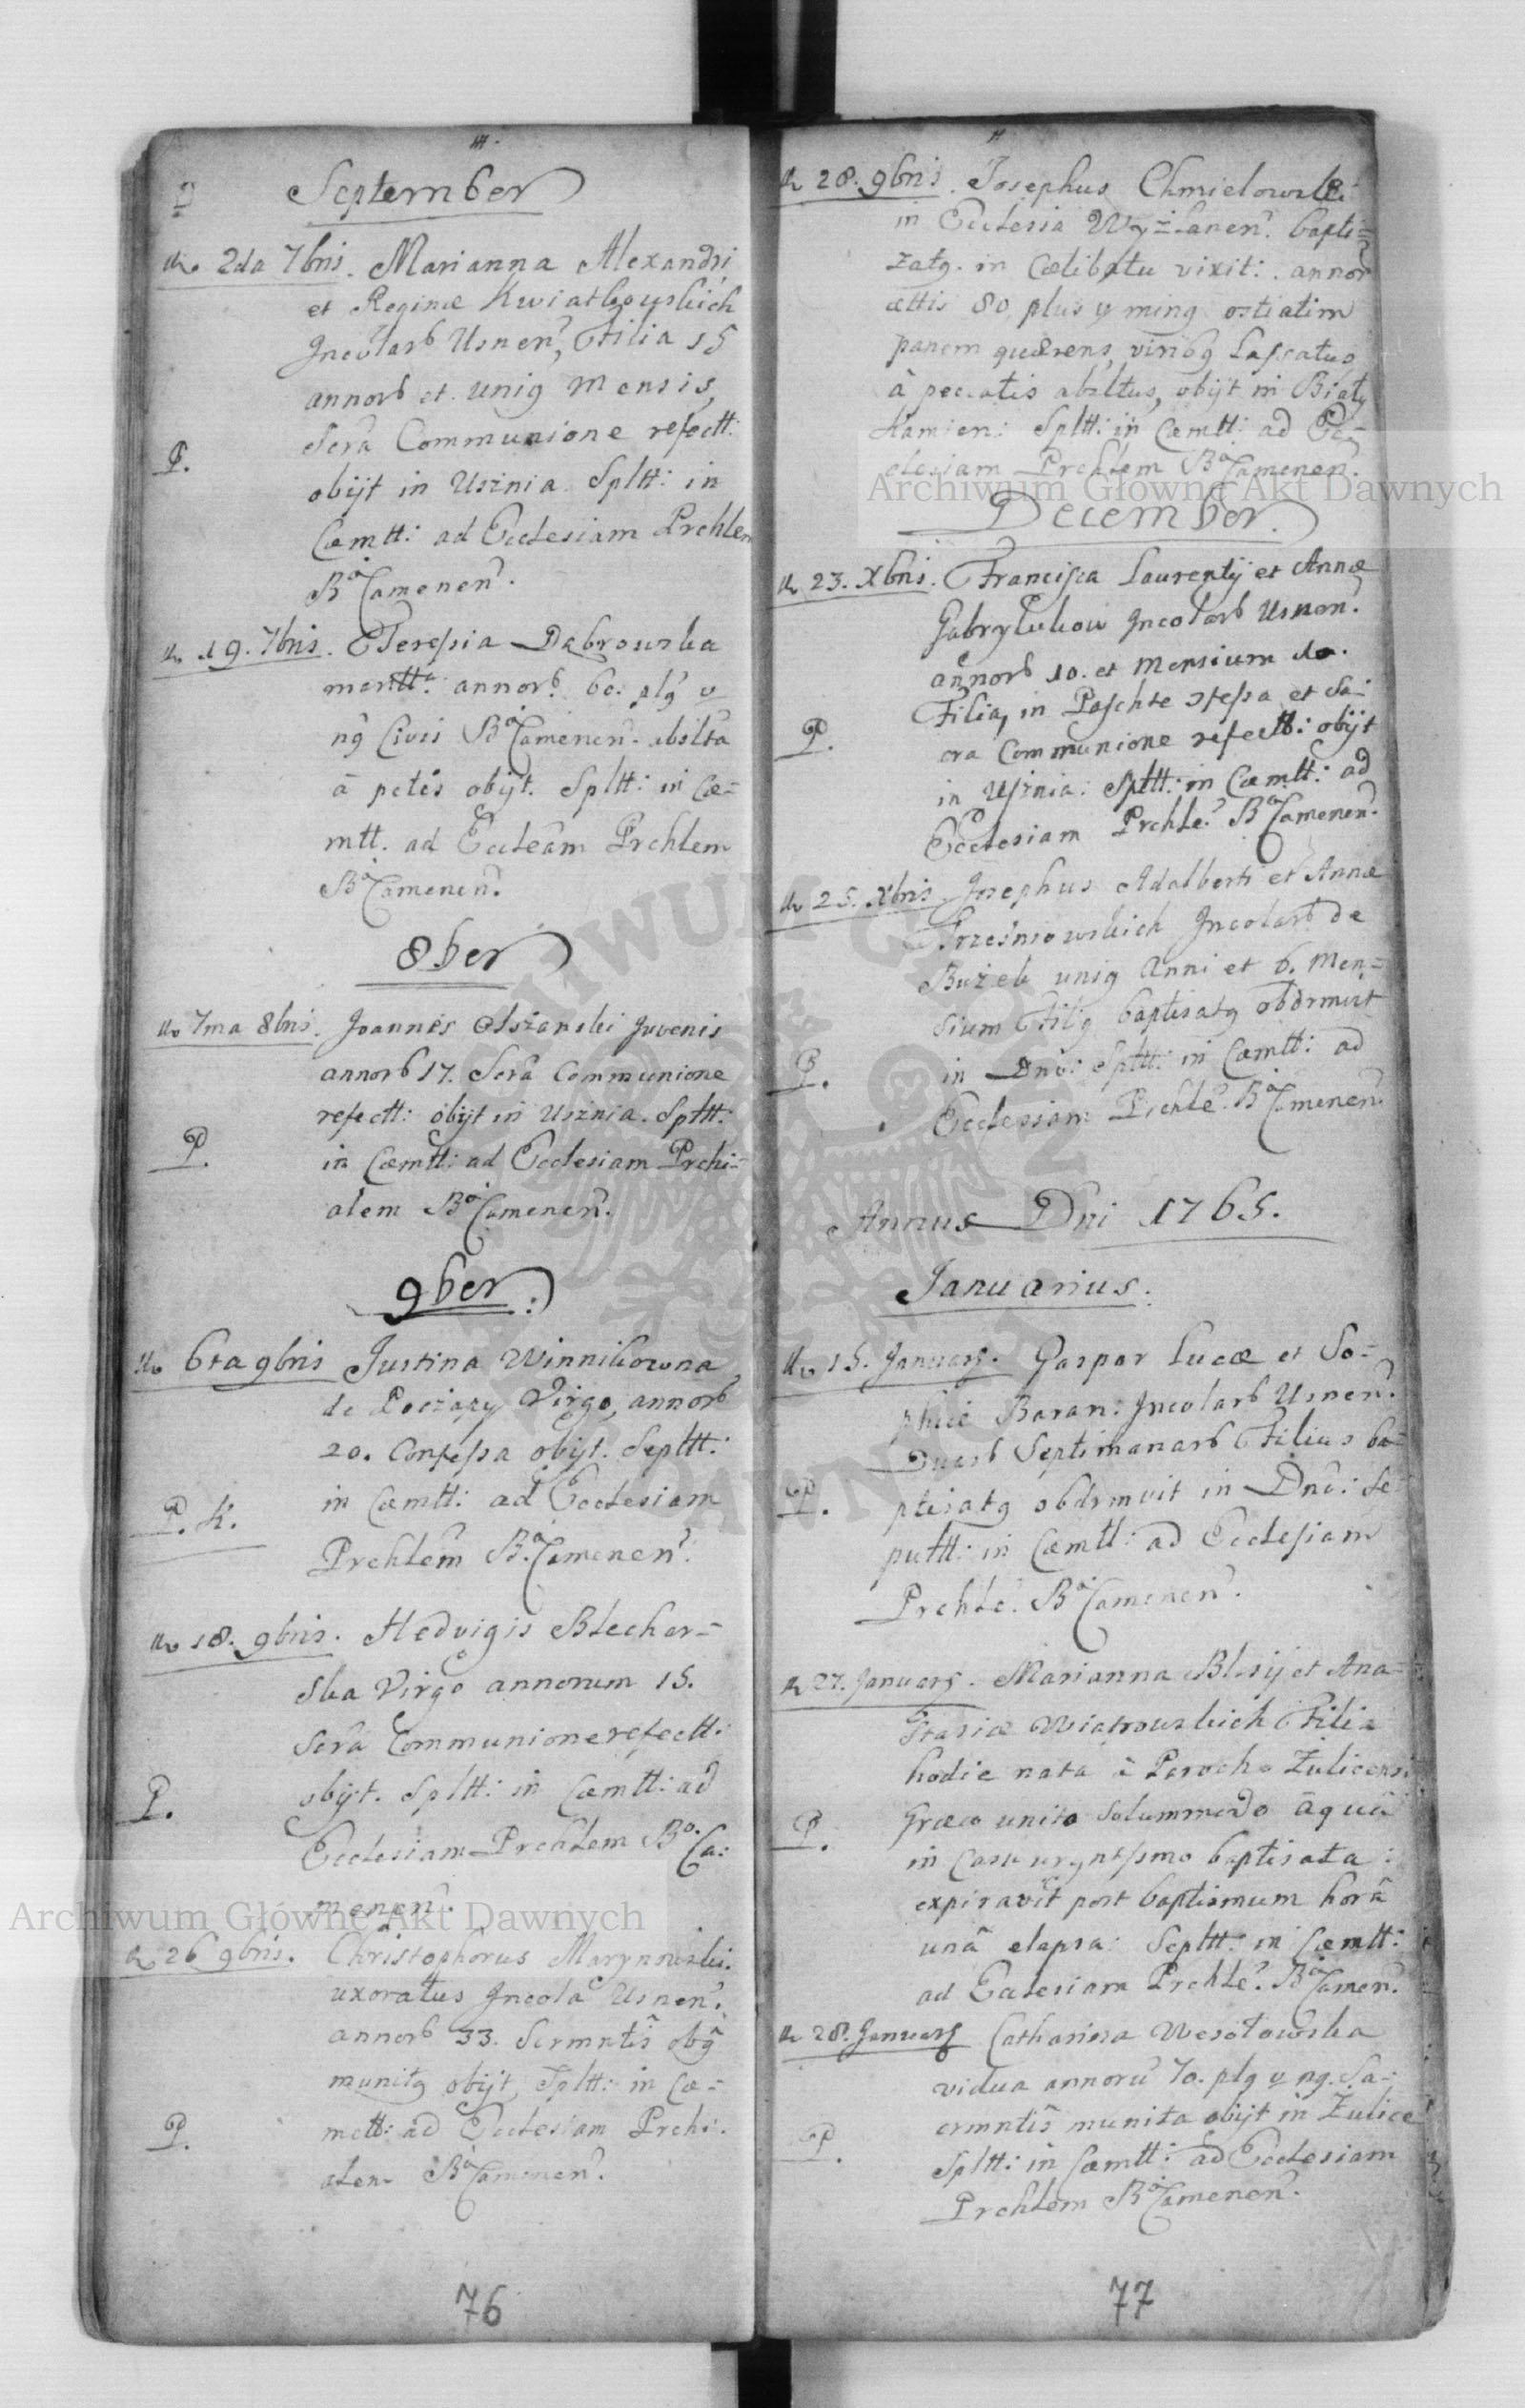 September
2da 7bris. Marianna Alexandri
et Reginæ Kwiatkowskich
Incolarb Usnen, Filia 15
annorb et unig Mensis,
Scra Communione refectt:
P.
obijt in Usznia Spltt: in
Cæmtt: ad Ecclesiam Prchlem
Ba Camenen.
19. 7bris. Teressia Dąbrowska
annorb. 60. plg v
ng Civis Ba Camenen. abslta
a pctis obijt. Spltt: in Cæ-
mtt. ad Eccleam Prchlem
Ba Camenen.
8ber
7ma 8bris. Joannes Juvenis
annorb 17. Scra Communione
refectt: obijt in Usznia. Spltt:
P.
in Cæmtt: ad Ecclesiam Prchi-
alem Ba Camenen.
9ber:
6ta 9bris Justina Winnikowna
de Virgo, annorb
20. Confessa obijt. Sepltt:
P. K.
in Cæmtt: ad Ecclesiam
Prchlem Ba Camenen.
18. 9bris. Hedvigis Blechar-
ska Virgo annorum 15.
Scra Communione refectt:
P.
obijt. Spltt: in Cæmtt: ad
Ecclesiam Prchlem Ba Ca:
menen.
26 9bris. Christophorus Marynowski
uxoratus Incola Usnen.
annorb 33. Scrmntis obg
munitg obijt, Spltt: in Cæ-
P.
mett: ad Ecclesiam Prchi-
alem Ba Camenen.
76
28. 9bris. Josephus Chmielowski
in Ecclesia Wyżłanen. bapti-
zatg. in Cælibatu vixit: annor
ættis 80 plus v ming ostiatim
panem quærens, viribg lassatus
â peccatis absltus, obijt in Biały
Kamien: Spltt: in Cæmtt: ad Ec-
clesiam Prchlem Ba Camenen.
December.
23. Xbris. Francisca Laurentij et Annæ
Incolarb Usnen.
annorb 10. et Mensium 10.
Filia, in Paschte et Sa-
P.
cra Communione refectt: obijt
in Usznia: Spltt: in Cæmtt: ad
Ecclesiam Prchle. Ba Camenen.
25. Xbris Josephus Adalberti et Annæ
Trześniowskich Incolarb de
Bużek unig Anni et 6. Men-
sium Filg baptisatg obdrmivit
P.
in Dno: Spltt: in Cæmtt: ad
Ecclesiam Prchle. Ba Camenen.
Annus Dni 1765.
Januarius.
15. Januarij. Gaspar Lucæ et So-
phiæ Baran: Incolarb Usnen.
Duarb Septimanarb Filius ba-
P.
ptisatg obdrmivit in Dno: Se-
pultt: in Cæmtt: ad Ecclesiam
Prchle. Ba Camenen.
27. Januarij. Marianna Blasij et Ana-
stasiæ Wiatrowskich Filia
hodie nata â Parocho Żulicensi
P.
Græco unito solummodo aquâ
in Casu urgntssmo baptisata:
expiravit post baptismum horâ
unâ elapsa: Sepltt: in Cæmtt:
ad Ecclesiam Prchle. Ba Camen.
28. Januarij Catharina Wesołowska
vidua annoru 70. plg v ng. Sa-
crmntis munita obijt in Żulice
P.
Spltt: in Cæmtt: ad Ecclesiam
Prchlem Ba Camenen.
77
Archiwum Główne Akt Dawnych
Archiwum Główne Akt Dawnych